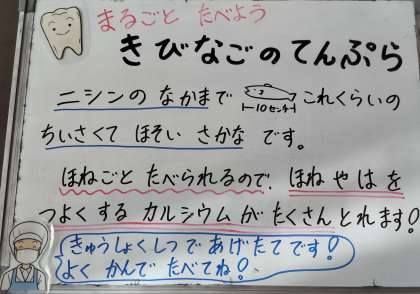 まるごと たべよう
きびなごのてんぷら
ニシンの なかまで 10センチ これくらいの
ちいさくて ほそい さかな です。
ほねごと たべられるので、ほねやはを
つよくする カルシウムが たくさん とれます!
きゅうしょくしつで あげたてです!
よく かんで たべてね!